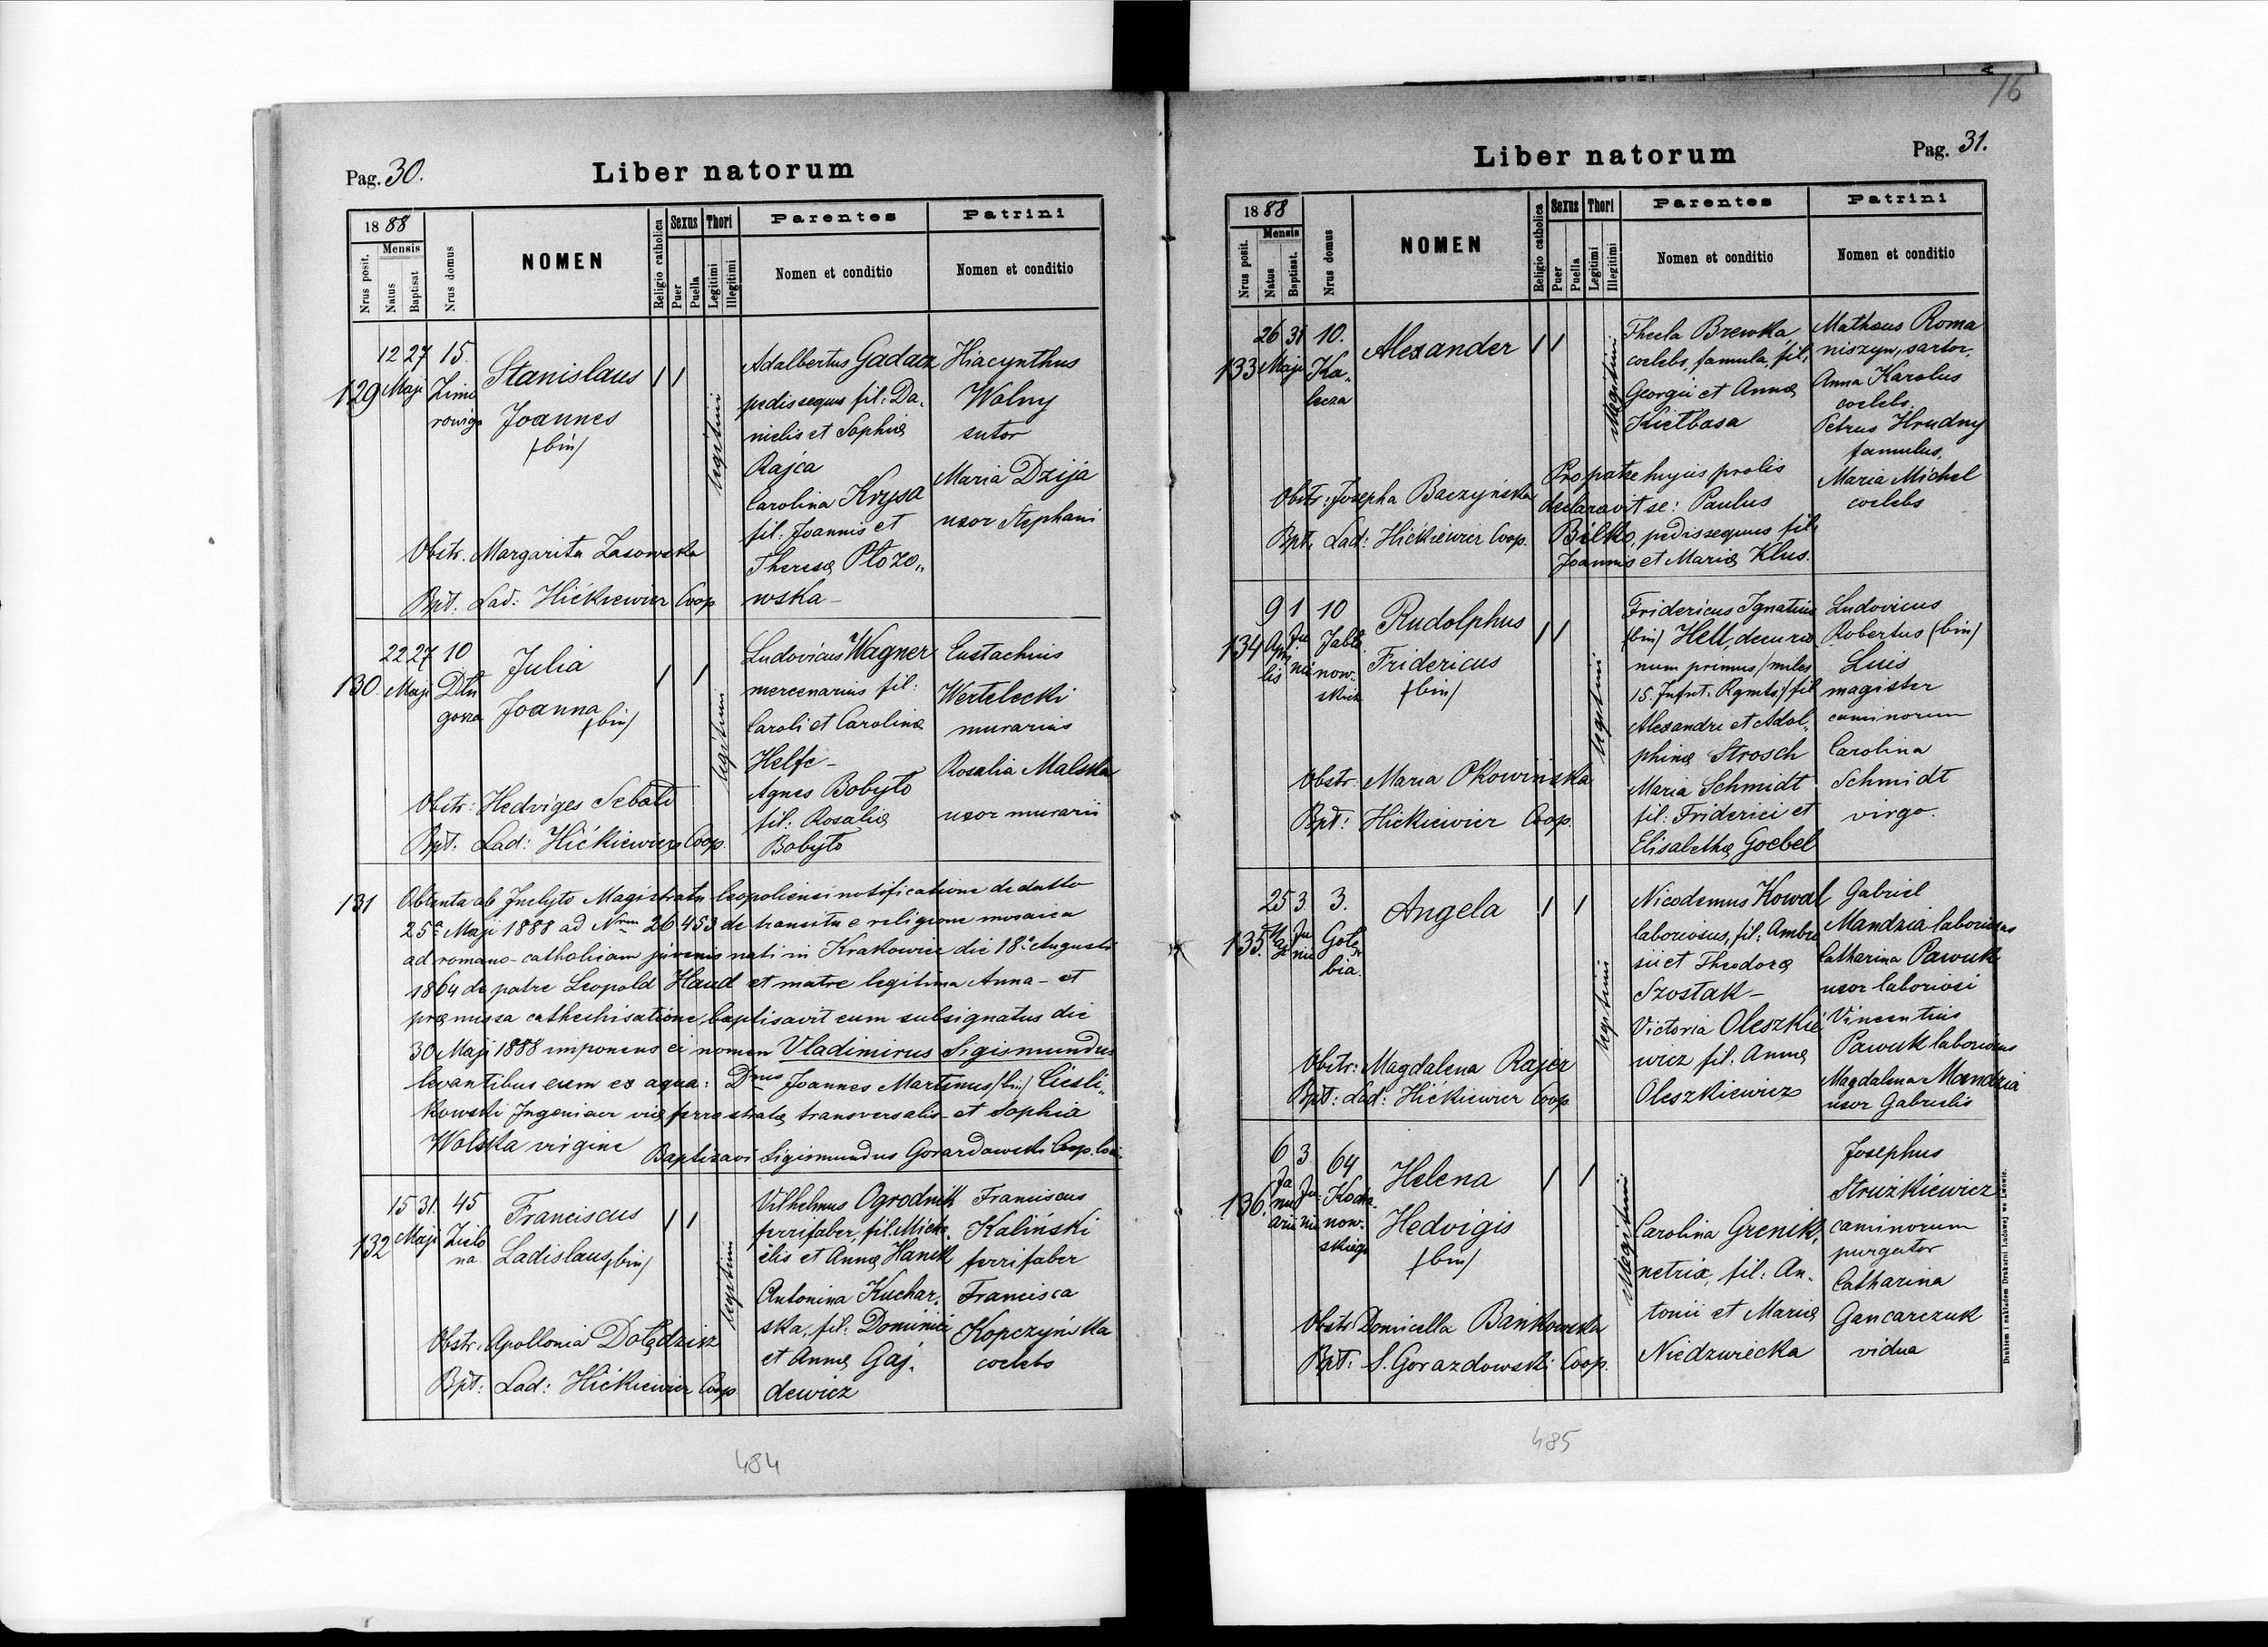 Pag. 30.
Liber natorum
1888
Mensis
Nrus posit.
Natus
Baptisat
Nrus domus
NOMEN
Religio catholica
Sexus
Puer
Puella
Thori
Legitimi
Illegitimi
Parentes
Nomen et conditio
Patrini
Nomen et conditio
129
12 27
Maji
15.
Zimo
rowicza
Stanislaus
Joannes
(bin)
legitimi
Adalbertus Gadacz
pedissequus fil: Da„
nielis et Sophiæ
Rajca
Carolina Krysa
fil: Joannis et
Theresæ Plozo„
wska
Hiacynthus
Wolny
sutor
Maria Dzija
uxor Stephani
Obstr. Margarita Zasowska
Bpt. Lad: Hićkiewicz Coop.
130.
22 27
Maji
10
Dłu
gosza
Julia
Joanna
(bin)
legitimi
Ludovicus Wagner
mercenarius fil:
Caroli et Carolinæ
Helfe
Agnes Bobyło
fil: Rosaliæ
Bobyło
Eustachius
Wertelecki
murarius
Rosalia Malska
uxor murarii
Obstr: Hedviges Sebald
Bpt. Lad: Hićkiewicz Coop.
131
Obtenta ab Inclyto Magistratu leopoliensi notificatione de datto
25a Maji 1888 ad Nrum 26453 de transitu e religione mosaica
ad romano-catholicam juvenis nati in Krakowiec die 18a Augusti
1864 de patre Leopold Haud et matre legitima Anna - et
præmissa cathechisatione, baptisavit eum subsignatus die
30 Maji 1888 imponens ei nomen Vladimirus Sigismundus
levantibus eum ex aqua: Dnus Joannes Martinus (bin) Ciesli„
kowski Ingenieur viæ ferro stratæ transversalis et Sophia
Wolska virgine
Baptizavi Sigismundus Gorazdowski Coop.
132
15 31.
Maji
45
Zielo
na.
Franciscus
Ladislaus (bin)
legitimi
Vilhelmus Ogrodnik
ferrifaber, fil: Micha„
ëlis et Annæ Hanek
Antonina Kuchar„
ska, fil: Dominici
et Annæ Gaj„
dewicz
Franciscus
Kaliński
ferrifaber
Francisca
Kopczyńska
coelebs
Obstr. Apollonia Dołędzisz
Bpt: Lad: Hićkiewicz Coop
484
16
Liber natorum
Pag. 31.
1888
Mensis
Nrus posit.
Natus
Baptisat.
Nrus domus
NOMEN
Religio catholica
Sexus
Puer
Puella
Thori
Legitimi
Illegitimi
Parentes
Nomen et conditio
Patrini
Nomen et conditio
133
26 31
Maji
10.
Ka„
lecza
Alexander
illegitimi
Thecla Brewka,
coelebs, famula, fil:
Georgii et Annæ
Kiełbasa
Mathæus Roma
niszyn, sartor,
Anna Karolus
coelebs.
Petrus Hrudny
famulus,
Maria Michel
coelebs
Obstr: Josepha Baczyńska
Bpt. Lad: Hićkiewicz Coop.
Pro patre hujus prolis
declaravit se: Paulus
Bilko, pedissequus, fil:
Joannis et Mariæ Klus.
134
9 1
Apri
lis
Ju
nii
10
Jabło
now.
skich
Rudolphus
Fridericus
(bin)
legitimi
Fridericus Ignatius
(bin) Hell, decurio
num primus/miles
15. Infnt. Rgmts/ fil
Alexandri et Adol„
phinæ Strosch
Maria Schmidt
fil: Friderici et
Elisabethæ Goebel
Ludovicus
Robertus (bin)
Luis
magister
caminorum
Carolina
Schmidt
virgo.
Obstr: Maria Okowinska
Bpt: Hićkiewicz Coop.
135.
25 3.
Maji
Ju
nii
3.
Gołę
bia.
Angela
legitimi
Nicodemus Kowal
laboriosus, fil: Ambro
sii et Theodoræ
Szostak
Victoria Oleszkie
wicz fil: Annæ
Oleszkiewicz
Gabriel
Mandzia laboriosus
Catharina Pawuk
uxor laboriosi
Vincentius
Pawuk laboriosus
Magdalena Mandzia
uxor Gabrielis
Obstr: Magdalena Rajer
Bpt: Lad: Hićkiewicz Coop.
136.
6 3.
Ja
nu
arii
Ju
nii
64
Kocha
now.
skiego
Helena
Hedvigis
(bin)
illegitimi
Carolina Grenik,
netrix, fil: An„
tonii et Mariæ
Niedzwiecka
Josephus
Strużkiewicz
caminorum
purgator
Catharina
Gancarczuk
vidua
Obstr: Domicella Bańkowska
Bpt: S. Gorazdowski Coop.
Drukiem i nakładem Drukarni Ludowej we Lwowie.
485